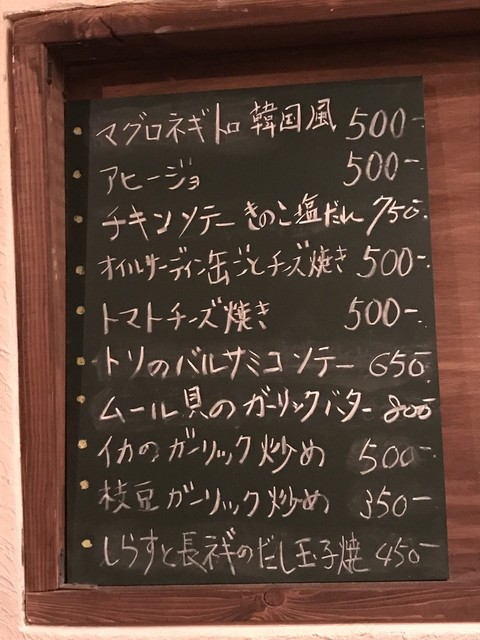 マグロネギトロ 韓国風 500-
アヒージョ 500-
チキンソテー きのこ塩だれ 750-
オイルサーディン缶ごとチーズ焼き 500-
トマトチーズ焼き 500-
トリのバルサミコソテー 650-
ムール貝のガーリックバター 800-
イカのガーリック炒め 500-
枝豆ガーリック炒め 350-
しらすと長ネギのだし玉子焼 450-